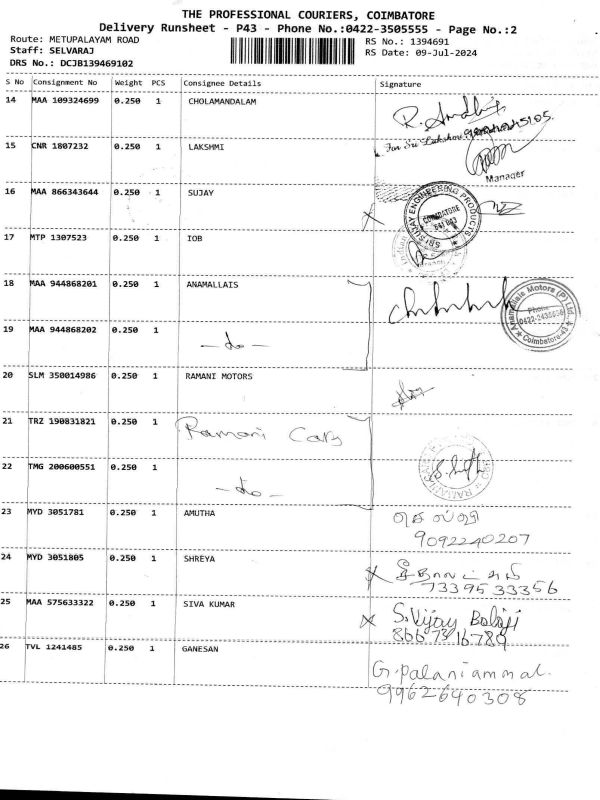 THE PROFESSIONAL COURIERS, COIMBATORE
Delivery Runsheet - P43 - Phone No.:0422-3505555 - Page No.:2
Route: METUPALAYAM ROAD
Staff: SELVARAJ
DRS No.: DCJB139469102
RS No.: 1394691
RS Date: 09-Jul-2024
S No Consignment No Weight PCS Consignee Details Signature
14 MAA 109324699 0.250 1 CHOLAMANDALAM
15 CNR 1807232 0.250 1 LAKSHMI For Sri Lakshmi
Manager
16 MAA 866343644 0.250 1 SUJAY
SRI SUJAY ENGINEERING PRODUCTS
COIMBATORE
641 043
17 MTP 1307523 0.250 1 IOB
18 MAA 944868201 0.250 1 ANAMALLAIS
Anamallais Motors (P) Ltd.
Phone
Coimbatore-43
19 MAA 944868202 0.250 1 -do-
20 SLM 350014986 0.250 1 RAMANI MOTORS
21 TRZ 190831821 0.250 1 Ramani Cars
22 TMG 200600551 0.250 1 -do-
23 MYD 3051781 0.250 1 AMUTHA
9092240207
24 MYD 3051805 0.250 1 SHREYA
73395 33356
25 MAA 575633322 0.250 1 SIVA KUMAR S. Vijay Balaji
866 73 16789
26 TVL 1241485 0.250 1 GANESAN G. palaniammal.
9962640308